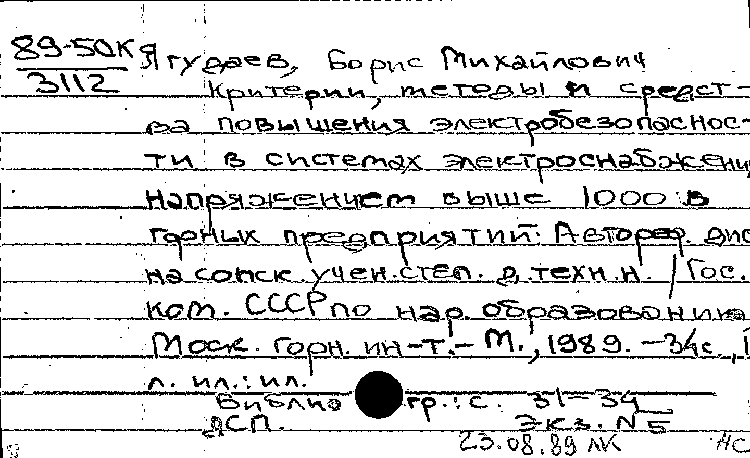 89-50К
3112
Ягудаев, Борис Михайлович
Критерии, методы и средст-
ва повышения электробезопаснос-
ти в системах электроснабжени
напряжением выше 1000 в
горных предприятий: Автореф. дис
на соиск. учен. степ. д. техн. н. / Гос.
ком. СССР по нар. образованию
Моск. горн. ин-т. - М., 1989. - 34 с.,
л. ил.: ил.
Библио гр.: с. 31-34
ДСП. Экз. №
23.08.89 ЛК НС